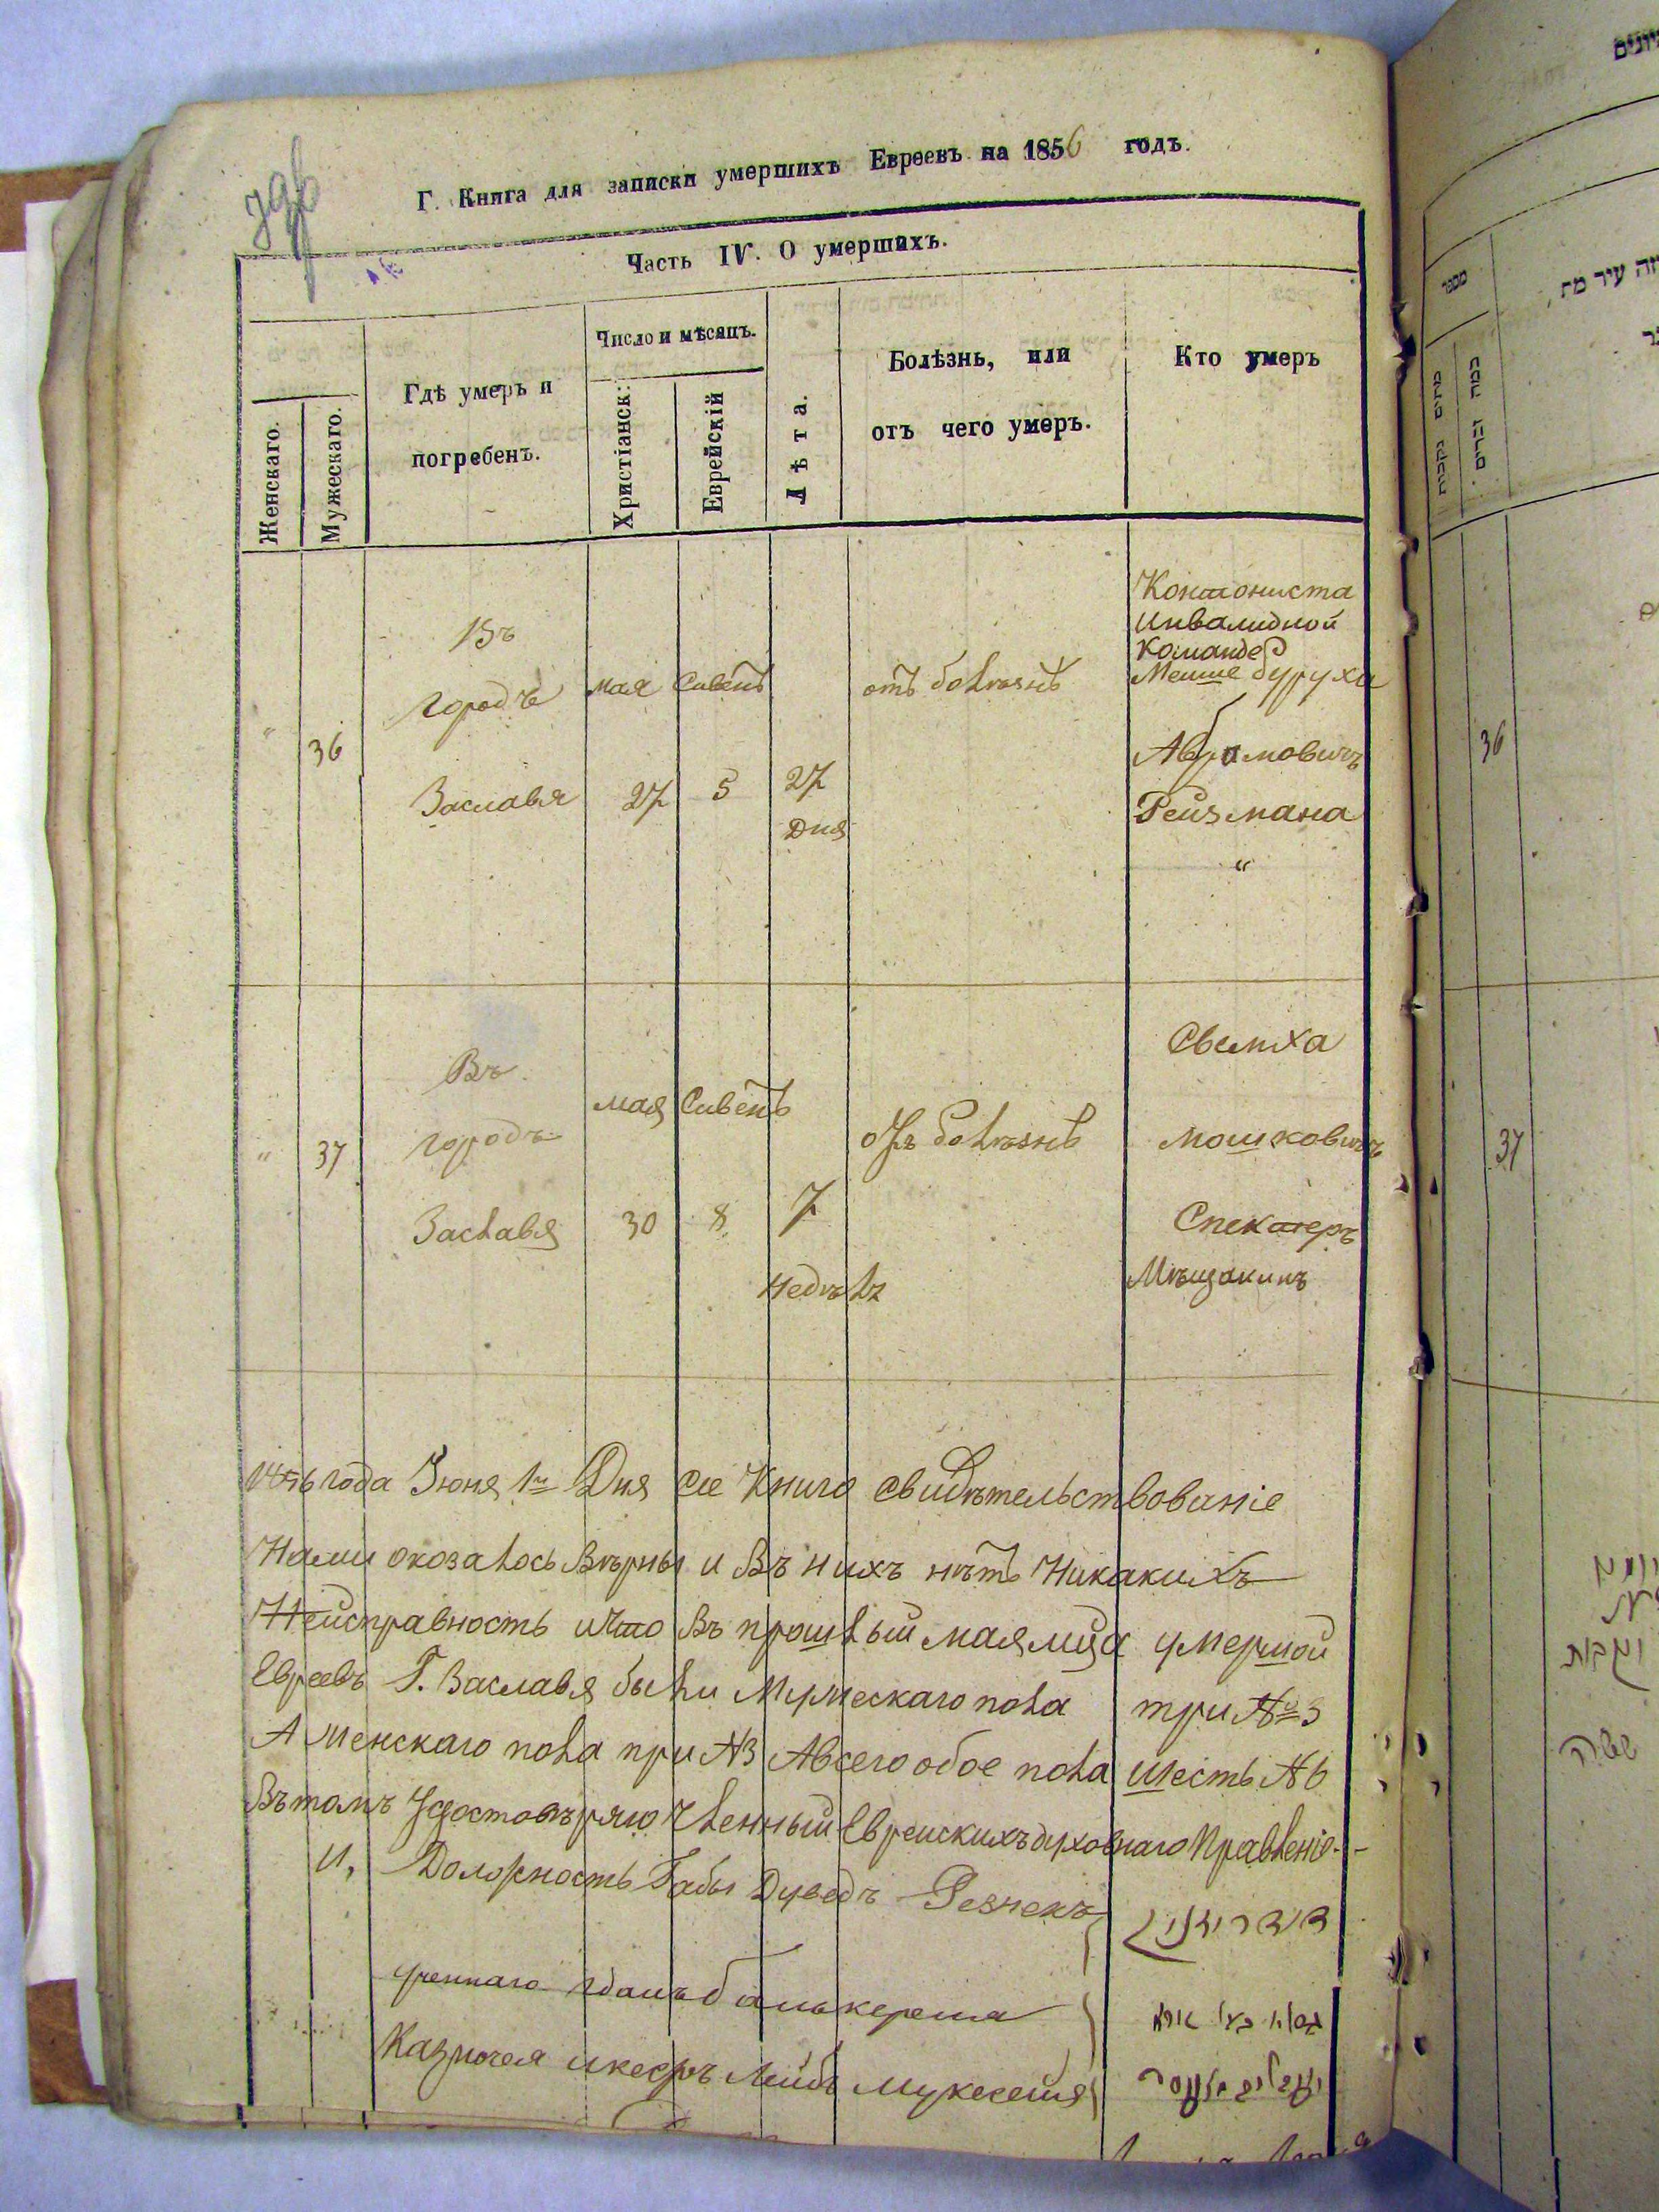 Г. Книга для записки умершихъ Евреевъ на 1856 годъ.
Часть IV. О умершихъ.
Женскаго.
Мужескаго.
Гдѣ умеръ и
погребенъ.
Число и мѣсяцъ.
Христіанск:
Еврейскій
Лѣта.
Болѣзнь, или
отъ чего умеръ.
Кто умеръ
"
36
Въ
городѣ
Заславя
мая
27
Сивенъ
5
27
Дня
отъ болѣзнѣ
Контониста
инвалидной
Команде
Мешие Буруха
Абрамовичъ
Рейзмана
"
"
37
Въ
городъ
Заславя
мая
30
Сивенъ
8
7
недѣлъ
отъ болѣзнѣ
Свимха
мошковичъ
Спекторъ
Мѣщанинъ
1856 года Іюня 1го Дня сіе Книга свидѣтельствованіе
Нами оказалось Вѣрны и Въ нихъ нѣтъ Никакихъ
Неисправность и что Въ прошлый мая мца умершой
Евреевъ Г. Заславя были Мужескаго пола три № 3
А женскаго пола при №3 А всего обое пола шесть № 6
Въ томъ Удостовѣряю Членный Еврейскихъ духовнаго Правленіе
И, Должность Габы Дуведъ Резнекъ
ученнаго
Казначея Лейбъ
מספר
מתים נקבות
כמה זכרים
עיר מת
36
37